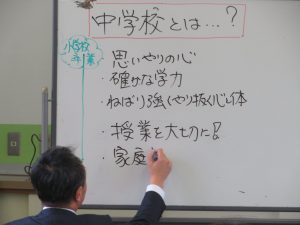 中学校とは…?
小学校
卒業
・思いやりの心
・確かな学力
・ねばり強くやり抜く心と体
・授業を大切に!!
・家庭